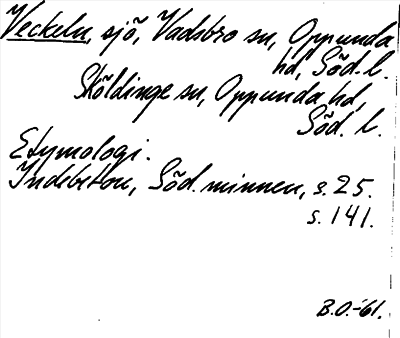 Veckeln, sjö, Vadsbro sn, Oppunda
hd, Söd. l.
Sköldinge sn, Oppunda hd,
Söd. l.
Etymologi.
Indebetou, Söd. minnen, s. 25.
s. 141.
B.O.-61.